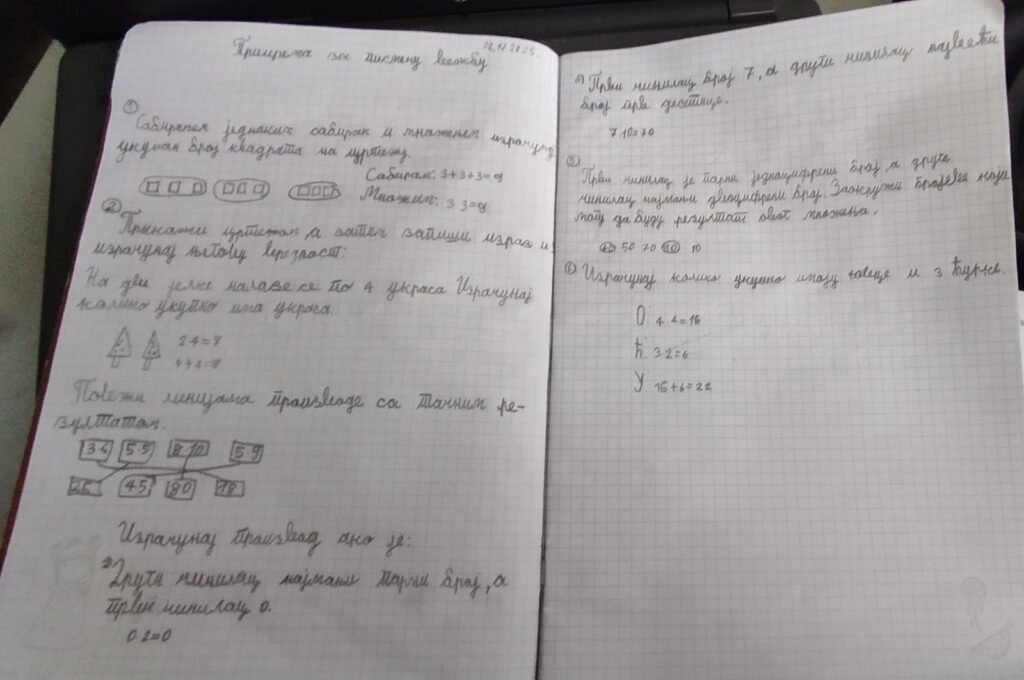 22.12.2025.
Припрема за писмену вежбу
①
Сабирањем једнаких сабирак и множењем израчунај
укупан број квадрата на цртежу.
Сабирам: 3+3+3=9
Множим: 3 3=9
②
Прикажи цртежом, а затим запиши израз и
израчунај његову вредност:
На две јелке налазе се по 4 украса Израчунај
колико укупно има украса.
2 4=8
4+4=8
Повежи линијама производе са тачним ре-
зултатом.
3 6 5·5 8·10 5·9
25 45 80 18
Израчунај производ ако је:
Други чинилац најмањи парни број, а
први чинилац 0.
0 2=0
Први чинилац број 7, а други чинилац највећи
број прве десетице.
7 10=70
Први чинилац је парни једноцифрени број, а други
чинилац најмањи двоцифрени број. Заокружи бројеве који
могу да буду резултат овог множења.
50 70 80 10
Израчунај колико укупно имају 4 овце и 3 ћурке.
О. 4 4=16
Ћ. 3 2=6
У 16+6=22